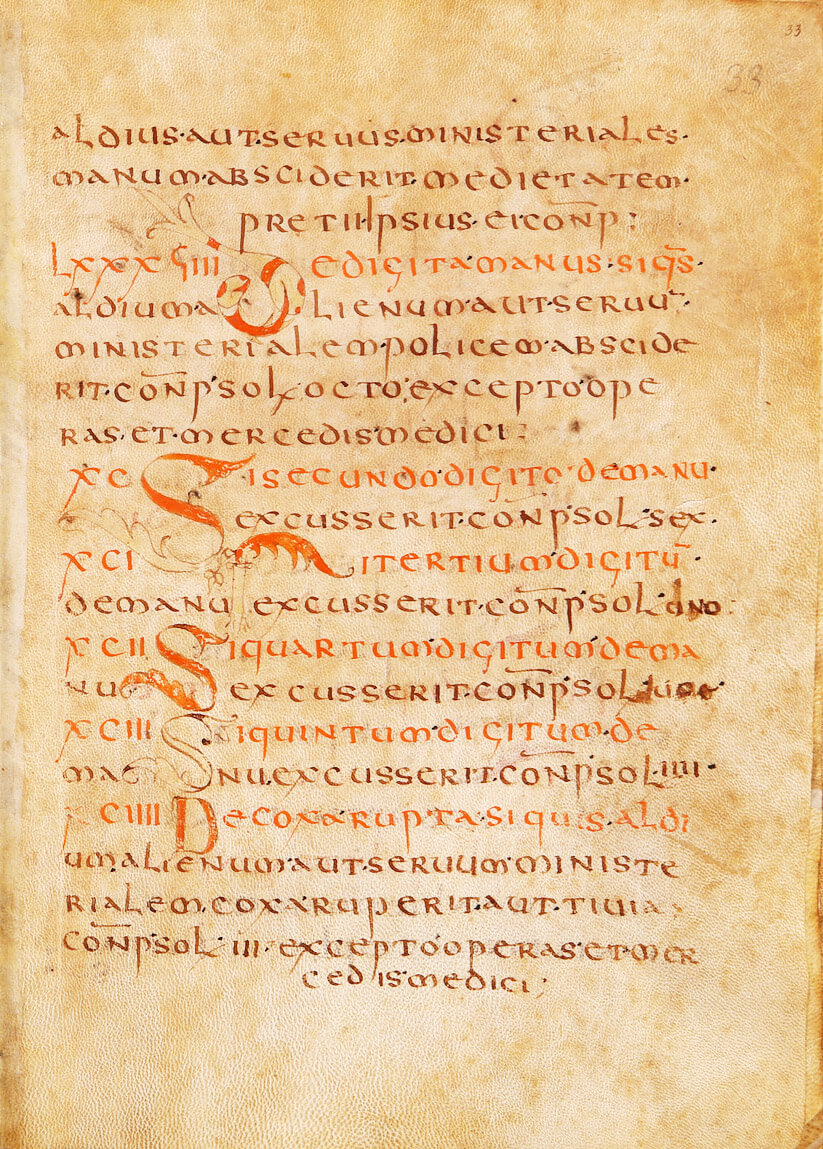 33
33
aldius·aut·seruus·ministeriales·
manum·absciderit·medietatem·
pretii·ipsius·ei·conp̄:
lxxxviiii De digita·manus·siq̄s·
aldium alienum·aut·seruū·
ministerialem·policem·abscide
rit·conp̄·sol·octo·excepto·ope
ras·et·mercedis·medici:
xc Si secundo·digito·demanu·
excusserit·conp̄·sol·sex·
xci Si tertium·digitū·
demanu excusserit·conp̄·sol·
xcii Si quartum·digitum·dema
nu excusserit·conp̄·sol·
xciii Si quintum·digitum·de
manu·excusserit·conp̄·sol·iiii·
xciiii De coxa rupta·si quis·aldi
um alienum·aut·seruum·ministe
rialem·coxa ruperit·aut·tiuia
conp̄·sol·iii·excepto operas·et mer
cedis·medici;